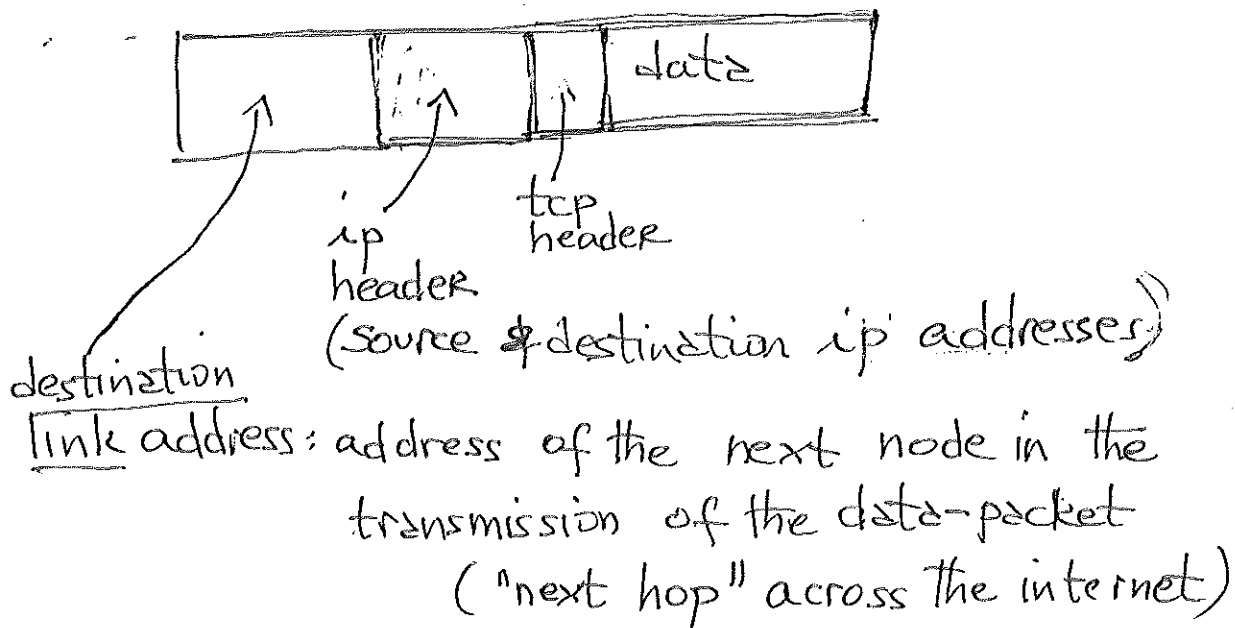 data
ip
header
tcp
header
(source & destination ip addresses)
destination
link address: address of the next node in the
transmission of the data-packet
("next hop" across the internet)